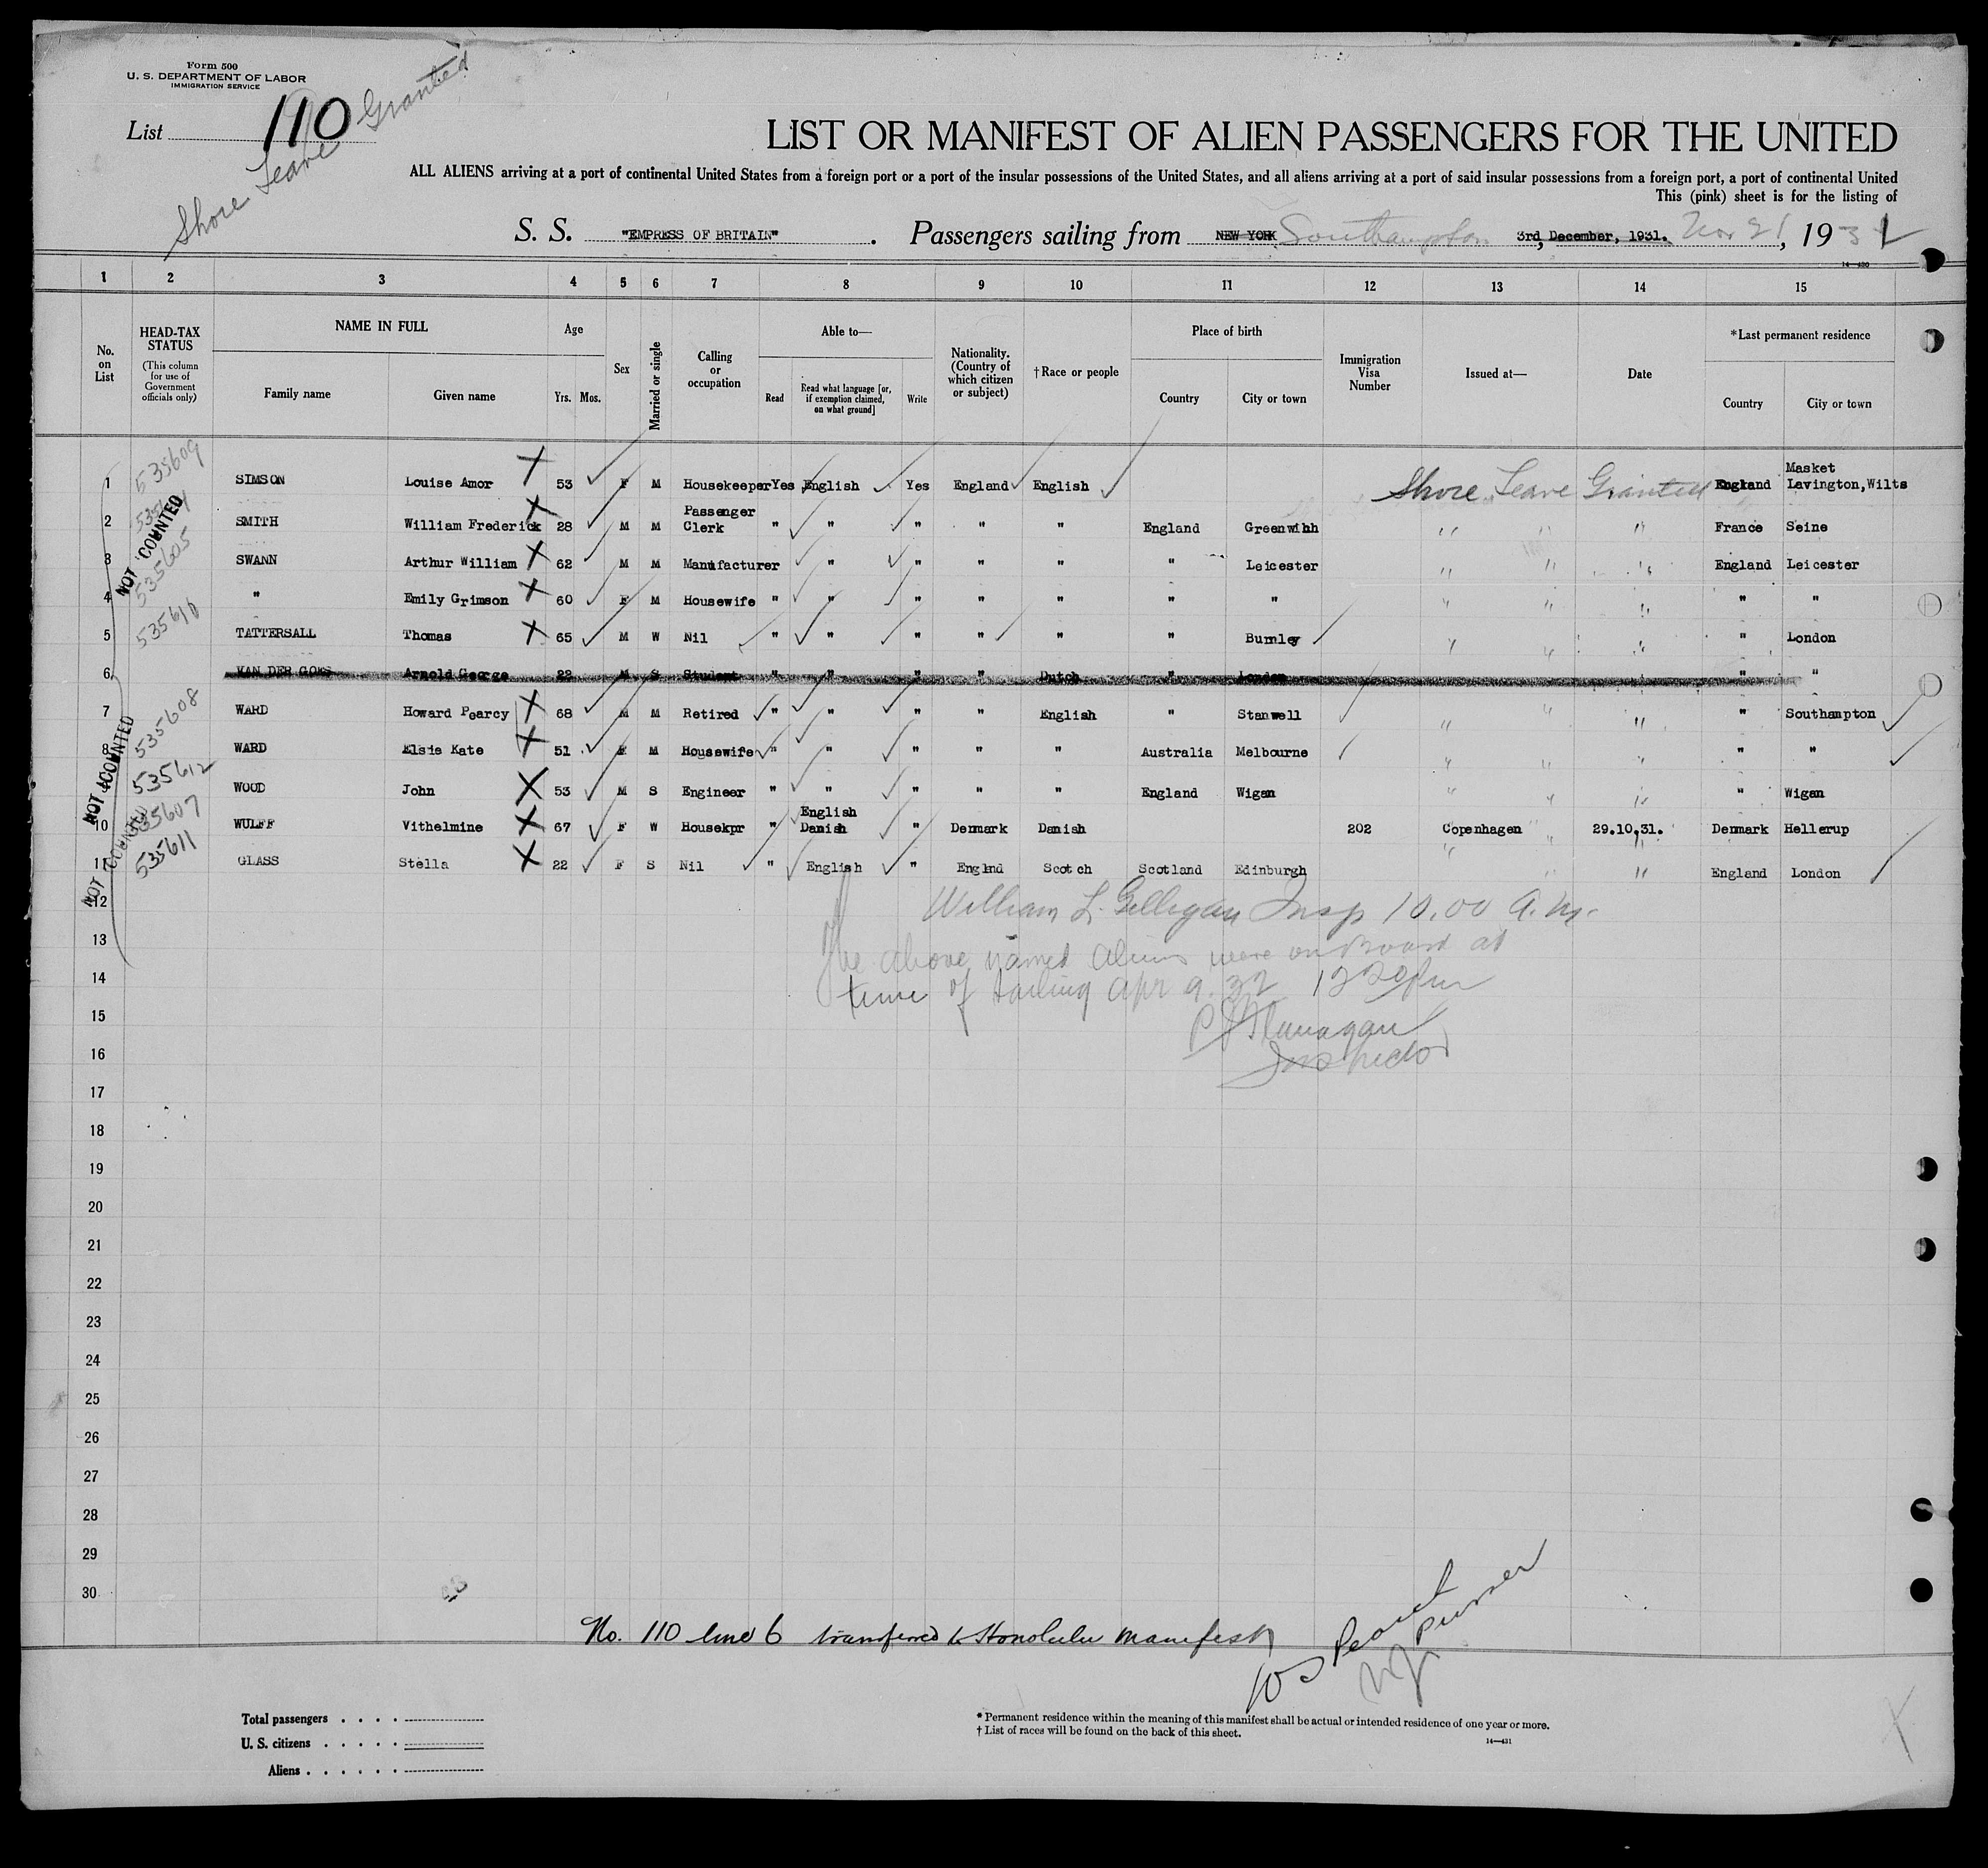 Form 500
U. S. DEPARTMENT OF LABOR
IMMIGRATION SERVICE
List 110
Shore Leave Granted
LIST OR MANIFEST OF ALIEN PASSENGERS FOR THE UNITED
ALL ALIENS arriving at a port of continental United States from a foreign port or a port of the insular possessions of the United States, and all aliens arriving at a port of said insular possessions from a foreign port, a port of continental United
This (pink) sheet is for the listing of
S. S. "EMPRESS OF BRITAIN". Passengers sailing from NEW YORK Southampton 3rd, December, 1931. Nov 21, 1931
14—430
1 2 3 4 5 6 7 8 9 10 11 12 13 14 15
No. on List
HEAD-TAX STATUS
(This column for use of Government officials only)
NAME IN FULL
Family name Given name
Age
Yrs. Mos.
Sex
Married or single
Calling or occupation
Able to—
Read
Read what language [or, if exemption claimed, on what ground]
Write
Nationality. (Country of which citizen or subject)
†Race or people
Place of birth
Country City or town
Immigration Visa Number
Issued at—
Date
*Last permanent residence
Country City or town
1 535609 SIMSON Louise Amor X 53 F M Housekeeper Yes English Yes England English Shore Leave Granted England Masket Lavington, Wilts
2 SMITH William Frederick X 28 M M Passenger Clerk " " " " " England Greenwihh " " " France Seine
3 535605 SWANN Arthur William X 62 M M Manufacturer " " " " " Leicester " " " England Leicester
4 " Emily Grimson X 60 F M Housewife " " " " " " " " " " " "
5 535610 TATTERSALL Thomas X 65 M W Nil " " " " " " Burnley " " " " London
6 VAN DER GOES Arnold George 22 M S Student " " " " Dutch " London " "
7 535608 WARD Howard Pearcy X 68 M M Retired " " " " English " Stanwell " " " " Southampton
8 WARD Elsie Kate X 51 F M Housewife " " " " " Australia Melbourne " " " " "
9 535612 WOOD John X 53 M S Engineer " " " " " England Wigan " " " " Wigan
10 535607 WULFF Vithelmine X 67 F W Housekpr " English Danish " Denmark Danish 202 Copenhagen 29.10.31. Denmark Hellerup
11 535611 GLASS Stella X 22 F S Nil " English " Englnd Scotch Scotland Edinburgh " " " England London
NOT COUNTED
NOT COUNTED
NOT COUNTED
12
William L. Gilligan Insp 10.00 a.m.
13
The above named aliens were on board at
14
time of sailing Apr 9. 32 12 20 pm
15
P J Flanagan
16
Inspector
17
18
19
20
21
22
23
24
25
26
27
28
29
30
No. 110 line 6 transferred to Honolulu manifest
Purser
Total passengers . . . .
U. S. citizens . . . . .
Aliens . . . . . .
* Permanent residence within the meaning of this manifest shall be actual or intended residence of one year or more.
† List of races will be found on the back of this sheet.
14—431